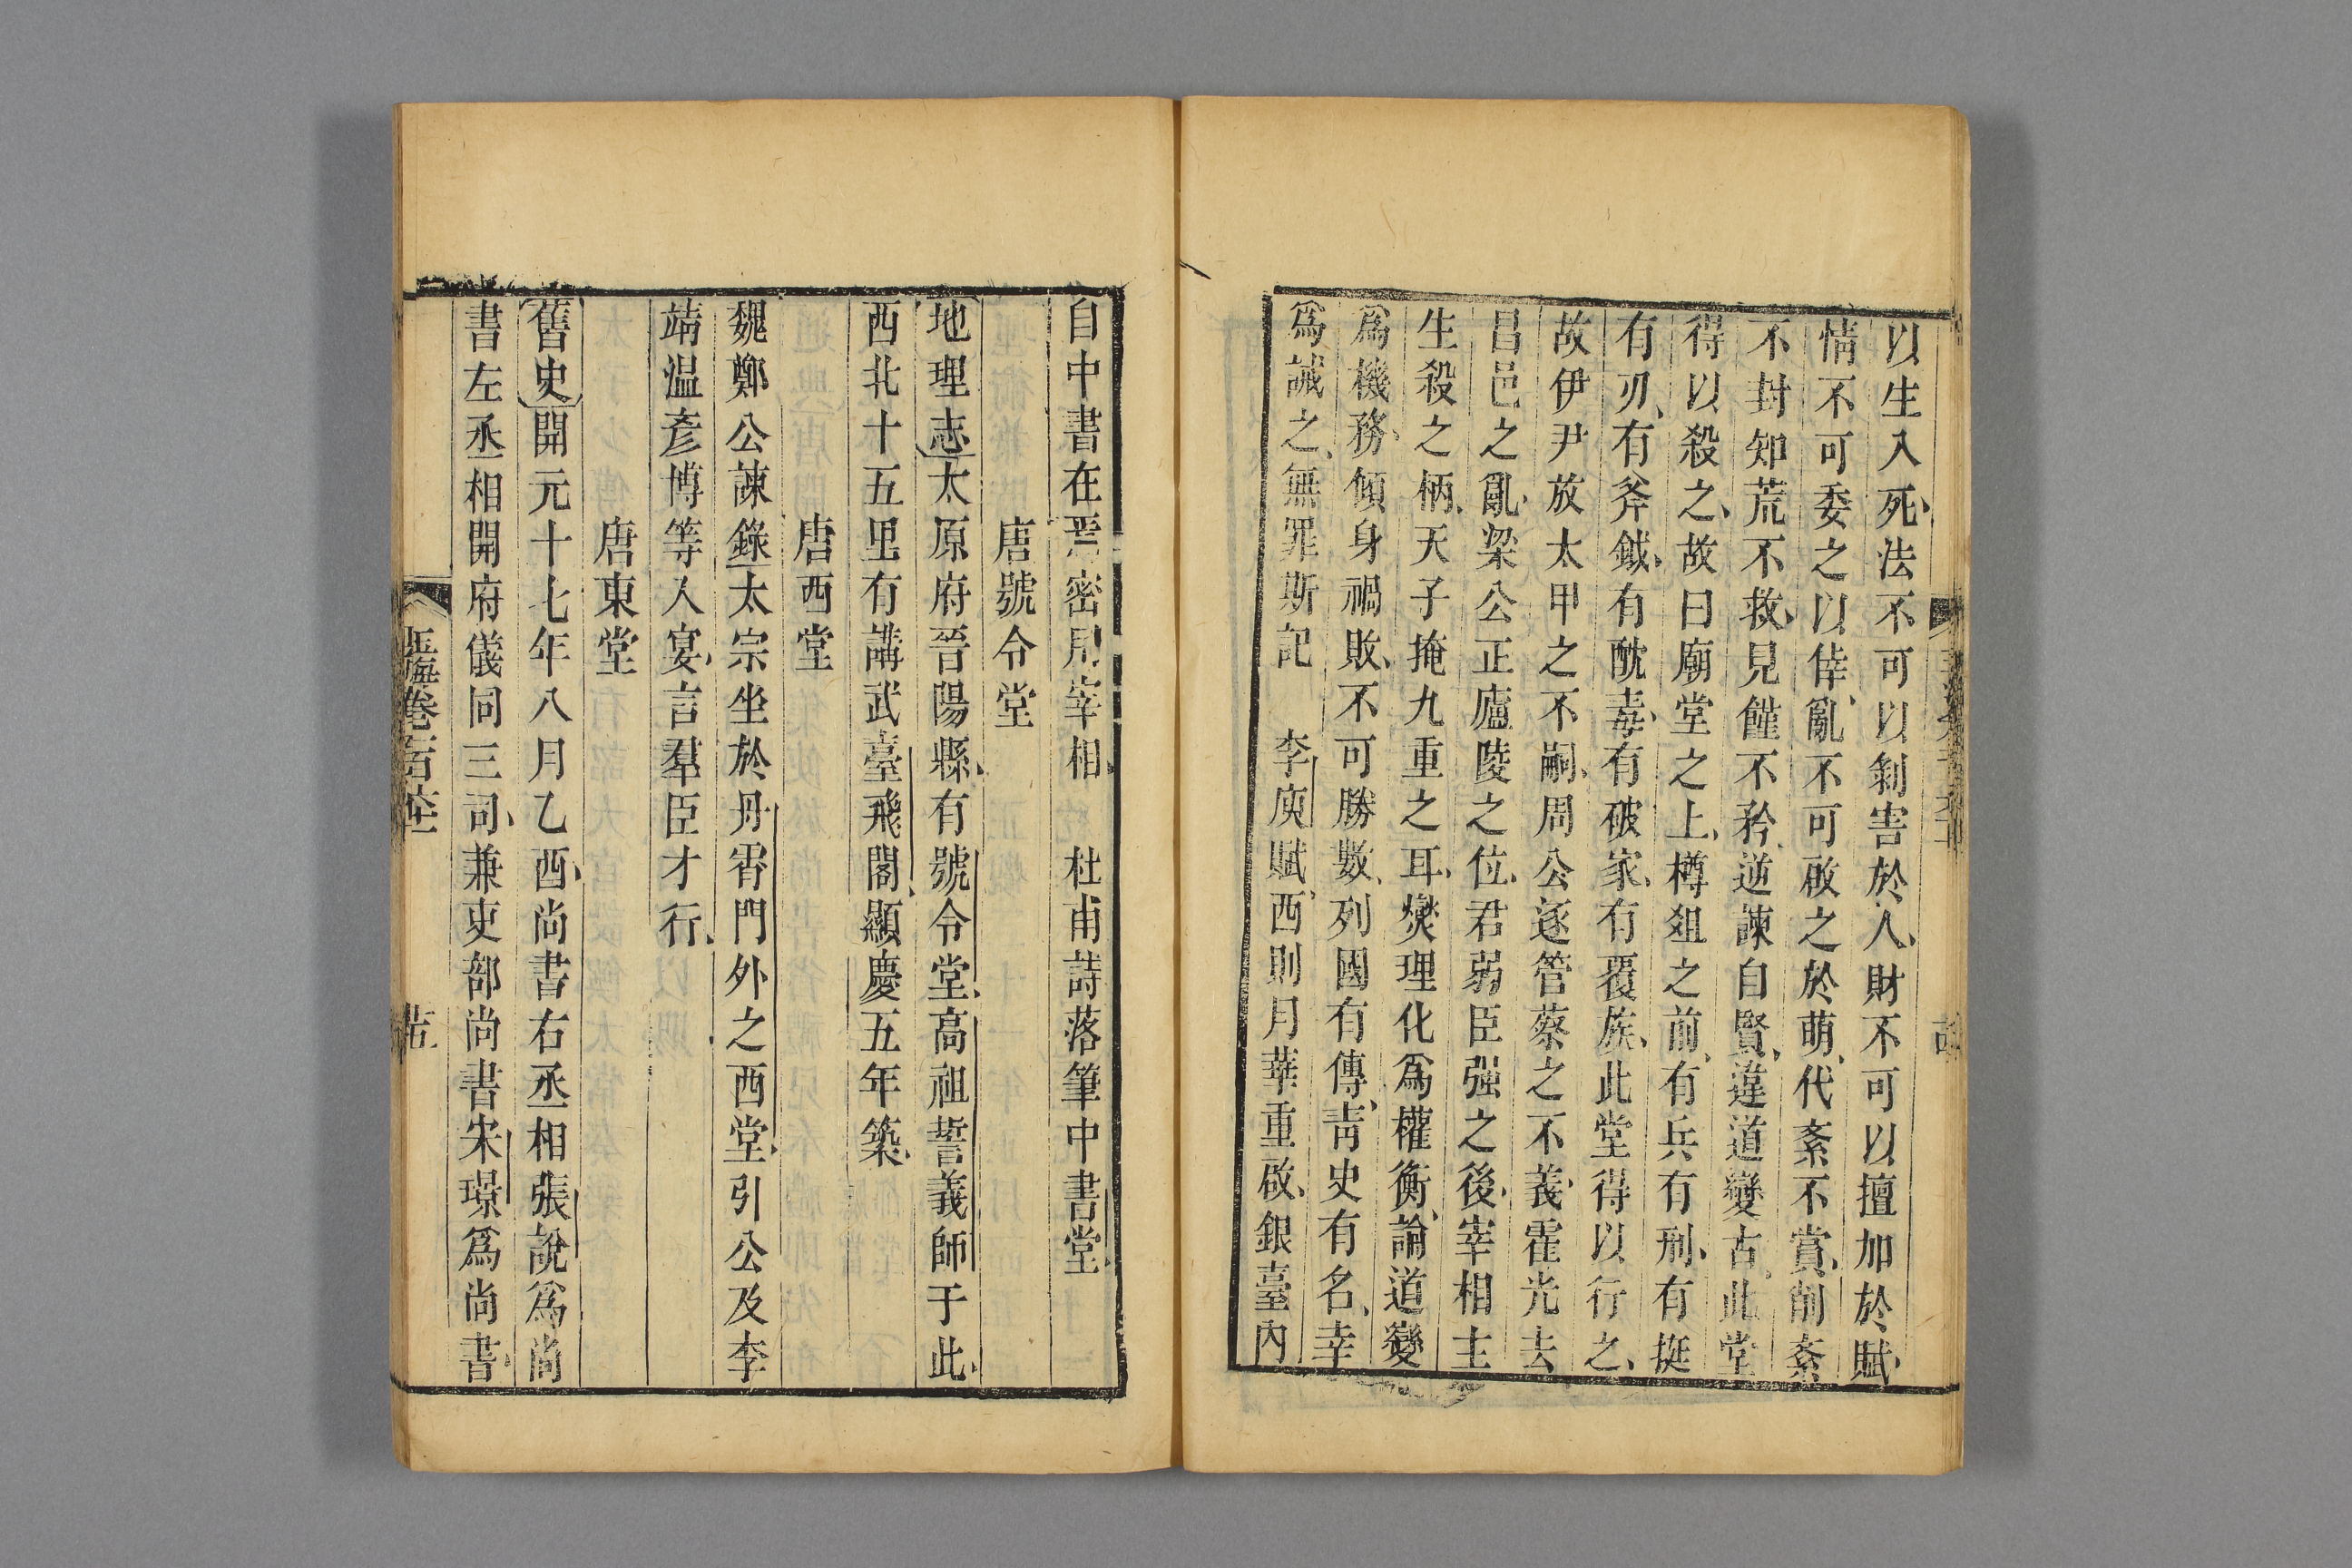 以生入死法不可以剝害於人財不可以擅加於賦
情不可委之以倖亂不可啟之於萌代紊不賞削紊
不封知荒不救見饉不矜逆諫自賢違道變古此堂
得以殺之故曰廟堂之上樽俎之前有兵有刑有挺
有刃有斧鉞有酖毒有破家有覆族此堂得以行之
故伊尹放太甲之不嗣周公逐管蔡之不義霍光去
昌邑之亂梁公正廬陵之位君弱臣强之後宰相主
生殺之柄天子掩九重之耳燮理化爲權衡論道變
爲機務傾身禍敗不可勝數列國有傳靑史有名幸
爲誡之無罪斯記 李庾賦西則月華重啟銀臺內
自中書在焉密用宰相 杜甫詩落筆中書堂
唐號令堂
地理志太原府晉陽縣有號令堂高祖誓義師于此
西北十五里有講武臺飛閣顯慶五年築
唐西堂
魏鄭公諫錄太宗坐於丹霄門外之西堂引公及李
靖溫彥博等入宴言羣臣才行
唐東堂
舊史開元十七年八月乙酉尚書右丞相張說爲尚
書左丞相開府儀同三司兼吏部尚書宋璟爲尚書